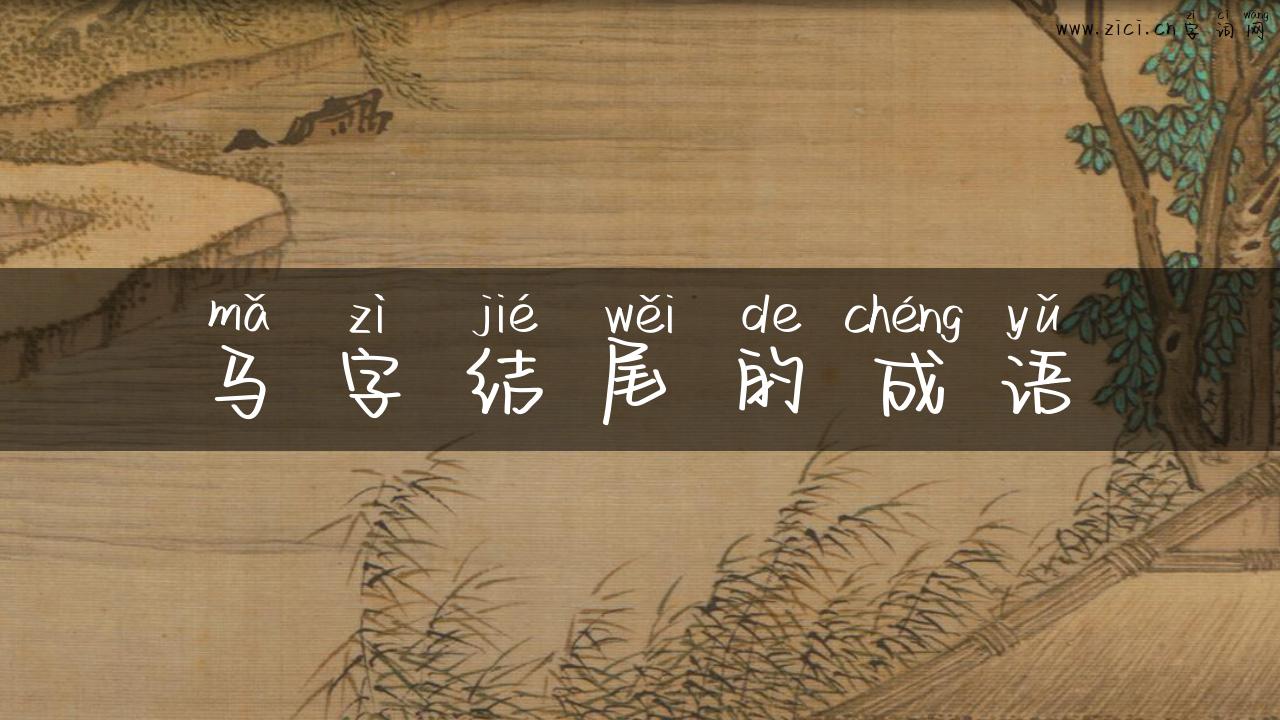 zì cí wǎng
www.zici.cn字词网
mǎ zì jié wěi de chéng yǔ
马字结尾的成语